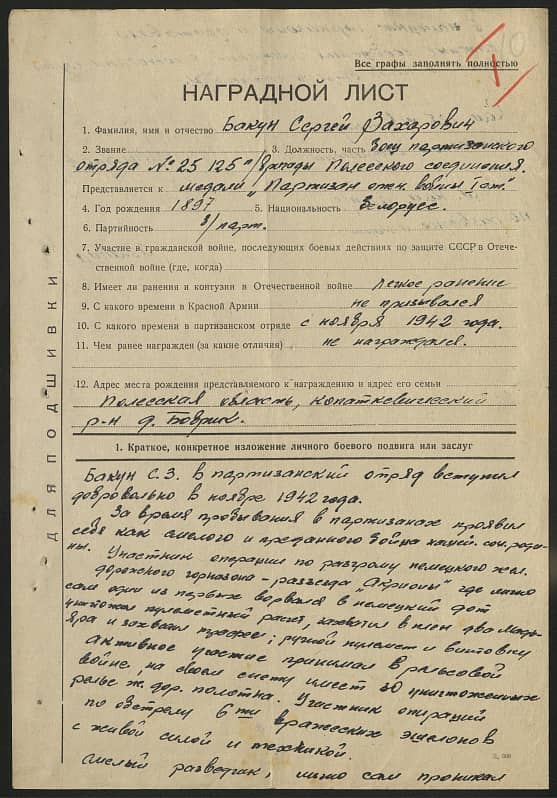 Все графы заполнять полностью
НАГРАДНОЙ ЛИСТ
1. Фамилия, имя и отчество Бакун Сергей Захарович
2. Звание 3. Должность, часть Боец партизанского
отряда № 25 125 п/бригады Полесского соединения.
Представляется к медали "Партизан отеч. войны I ст."
4. Год рождения 1897 5. Национальность Белорусс.
6. Партийность б/парт.
7. Участие в гражданской войне, последующих боевых действиях по защите СССР в Отече-
ственной войне (где, когда)
8. Имеет ли ранения и контузии в Отечественной войне Легкое ранение
9. С какого времени в Красной Армии не призывался
10. С какого времени в партизанском отряде с ноября 1942 года.
11. Чем ранее награжден (за какие отличия) не награждался.
12. Адрес места рождения представляемого к награждению и адрес его семьи
Полесская область, Копаткевичский
р-н д. Боврик.
ДЛЯ ПОДШИВКИ
1. Краткое, конкретное изложение личного боевого подвига или заслуг
Бакун С.З. в партизанский отряд вступил
добровольно в ноябре 1942 года.
За время пребывания в партизанах проявил
себя как смелого и преданного война нашей соц. роди-
ны. Участник операции по разгрому немецкого жел.
дорожного горнизона - разъезда "Окрионы" где лично
сам один из первых ворвался в немецкий дот
уничтожил пулеметный расчет, захватил в плен два мадь-
яра и захватил трофеи: ручной пулемет и винтовку
Активное участие принимал в рельсовой
войне, на своем счету имеет 30 уничтоженных
рельс ж. дор. полотна. Участник операций
по обстрелу 6 ти вражеских эшелонов
с живой силой и техникой.
Смелый разведчик, лично сам проникал